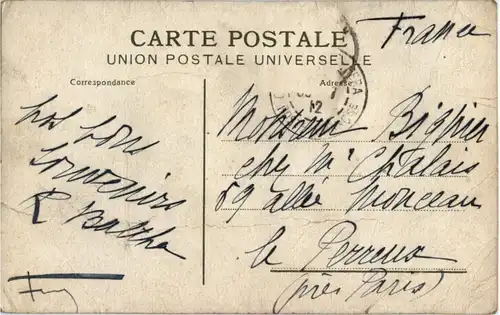 France
CARTE POSTALE
UNION POSTALE UNIVERSELLE
Correspondance
Adresse
bons
Souvenirs
R
Monsieur
chez Mr Chalais
59 allée Monceau
le Perreux
(près Paris)